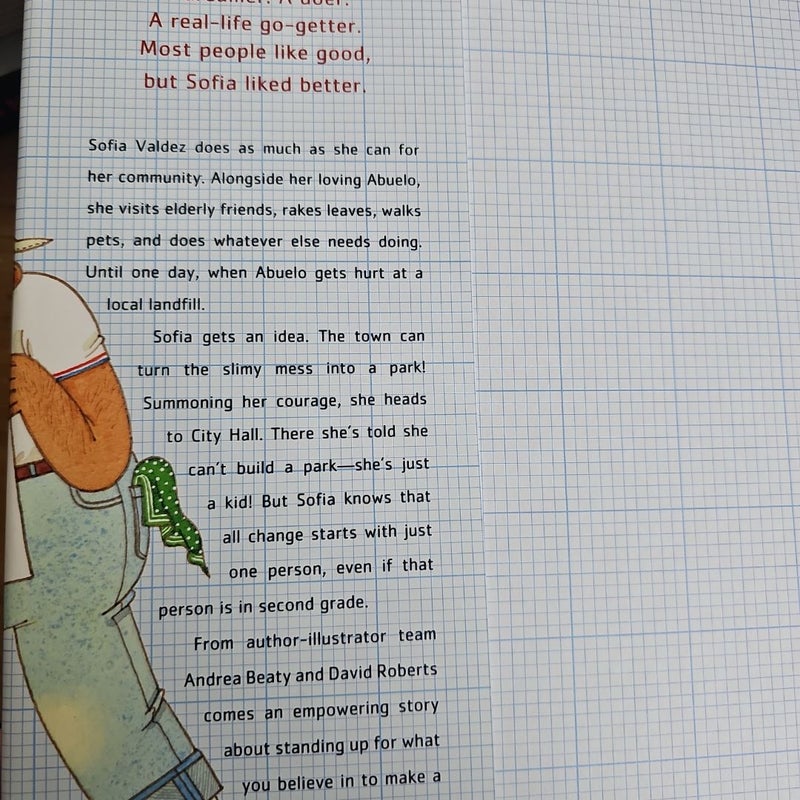 A doer.
A real-life go-getter.
Most people like good,
but Sofia liked better.
Sofia Valdez does as much as she can for
her community. Alongside her loving Abuelo,
she visits elderly friends, rakes leaves, walks
pets, and does whatever else needs doing.
Until one day, when Abuelo gets hurt at a
local landfill.
Sofia gets an idea. The town can
turn the slimy mess into a park!
Summoning her courage, she heads
to City Hall. There she's told she
can't build a park—she's just
a kid! But Sofia knows that
all change starts with just
one person, even if that
person is in second grade.
From author-illustrator team
Andrea Beaty and David Roberts
comes an empowering story
about standing up for what
you believe in to make a